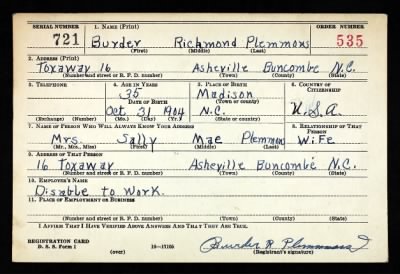 SERIAL NUMBER 1. NAME (Print) ORDER NUMBER
721 Burder Richmond Plemmons 535
(First) (Middle) (Last)
2. ADDRESS (Print)
Toxaway 16 Asheville Buncombe N.C.
(Number and street or R. F. D. number) (Town) (County) (State)
3. TELEPHONE 4. AGE IN YEARS 5. PLACE OF BIRTH 6. COUNTRY OF CITIZENSHIP
35 Madison
DATE OF BIRTH (Town or county)
Oct. 31 1904 N.C. U.S.A.
(Exchange) (Number) (Mo.) (Day) (Yr.) (State or country)
7. NAME OF PERSON WHO WILL ALWAYS KNOW YOUR ADDRESS 8. RELATIONSHIP OF THAT PERSON
Mrs. Sally Mae Plemmons Wife
(Mr., Mrs., Miss) (First) (Middle) (Last)
9. ADDRESS OF THAT PERSON
16 Toxaway Asheville Buncombe N.C.
(Number and street or R. F. D. number) (Town) (County) (State)
10. EMPLOYER'S NAME
Disable to Work.
11. PLACE OF EMPLOYMENT OR BUSINESS
(Number and street or R. F. D. number) (Town) (County) (State)
I AFFIRM THAT I HAVE VERIFIED ABOVE ANSWERS AND THAT THEY ARE TRUE.
REGISTRATION CARD
D. S. S. Form 1 (over) 16—17105 Burder R Plemmons
(Registrant's signature)